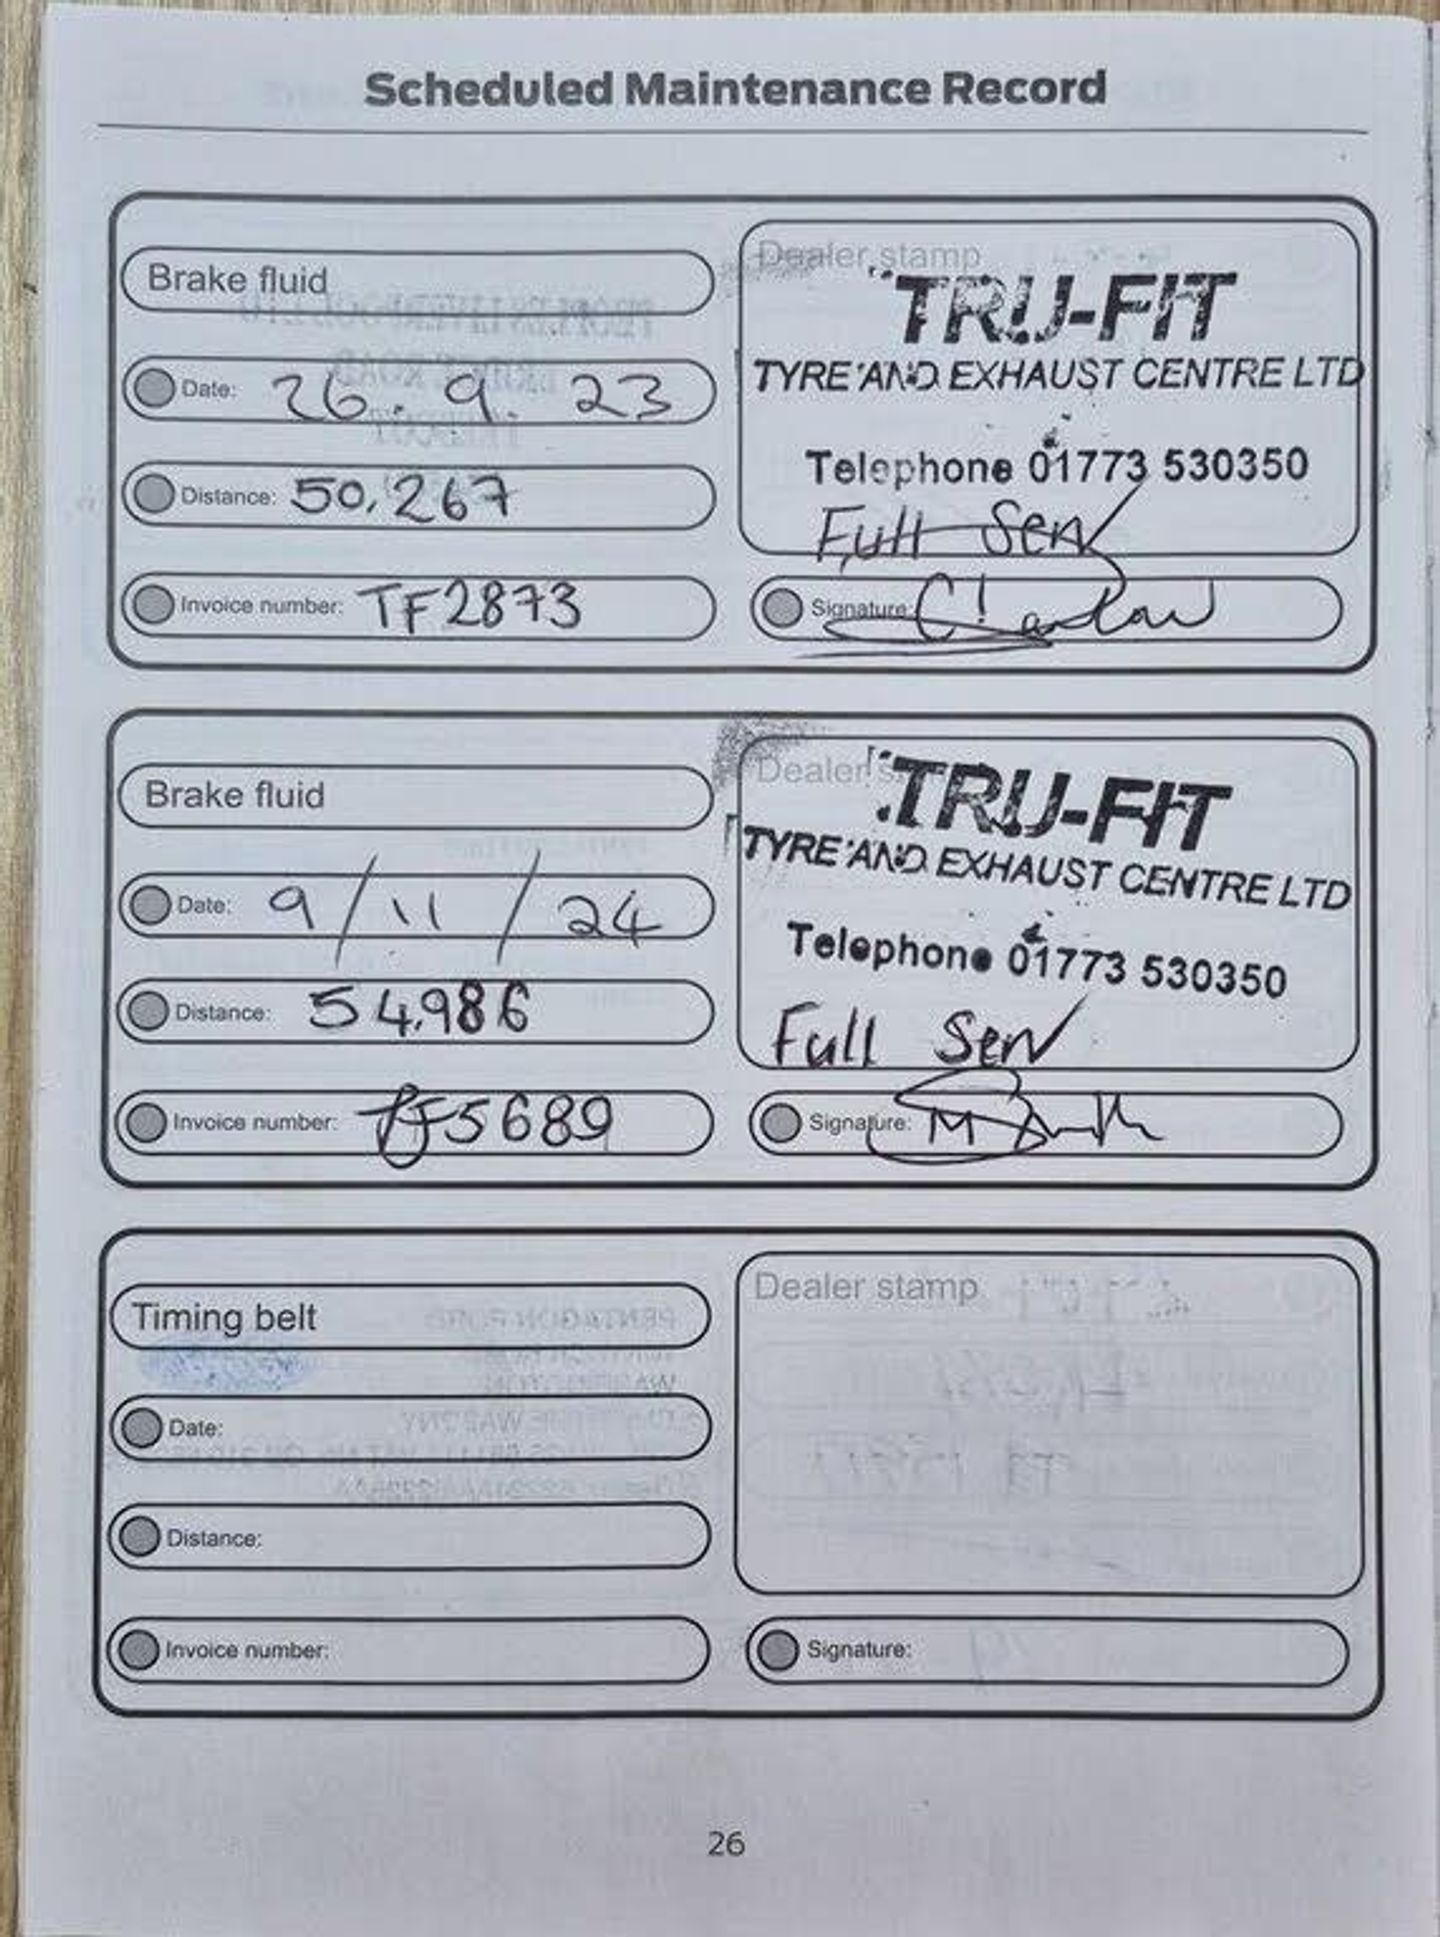 Scheduled Maintenance Record
Brake fluid
Date: 26.9.23
Distance: 50,267
Invoice number: TF2873
Dealer stamp
TRU-FIT
TYRE AND EXHAUST CENTRE LTD
Telephone 01773 530350
Full Serv
Signature:
Brake fluid
Date: 9/11/24
Distance: 54,986
Invoice number: TF5689
Dealer
TRU-FIT
TYRE AND EXHAUST CENTRE LTD
Telephone 01773 530350
Full Serv
Signature:
Timing belt
Date:
Distance:
Invoice number:
Dealer stamp
Signature:
26